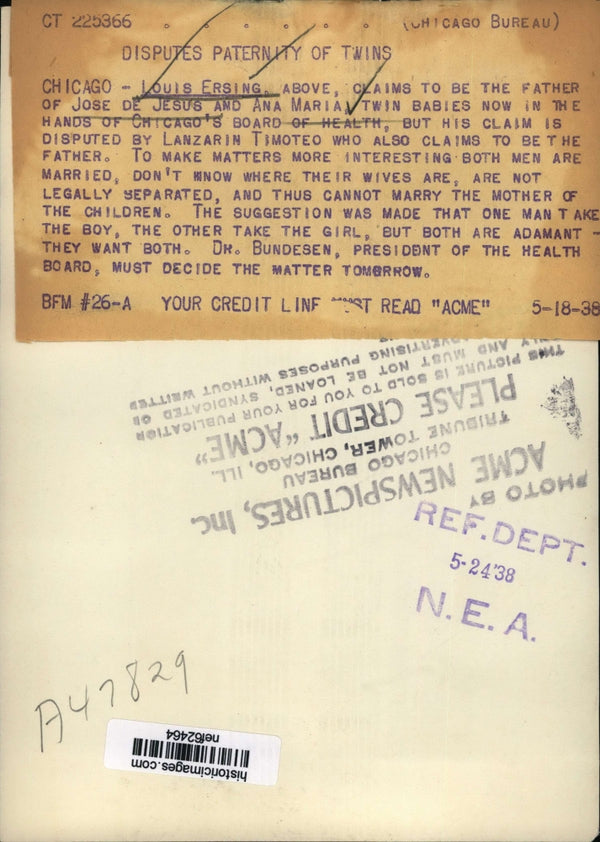 CT 225366 . . . . . . (CHICAGO BUREAU)
DISPUTES PATERNITY OF TWINS
CHICAGO - LOUIS ERSING, ABOVE, CLAIMS TO BE THE FATHER
OF JOSE DE JESUS AND ANA MARIA, TWIN BABIES NOW IN THE
HANDS OF CHICAGO'S BOARD OF HEALTH, BUT HIS CLAIM IS
DISPUTED BY LANZARIN TIMOTEO WHO ALSO CLAIMS TO BE THE
FATHER. TO MAKE MATTERS MORE INTERESTING BOTH MEN ARE
MARRIED, DON'T KNOW WHERE THEIR WIVES ARE, ARE NOT
LEGALLY SEPARATED, AND THUS CANNOT MARRY THE MOTHER OF
THE CHILDREN. THE SUGGESTION WAS MADE THAT ONE MAN TAKE
THE BOY, THE OTHER TAKE THE GIRL, BUT BOTH ARE ADAMANT -
THEY WANT BOTH. DR. BUNDESEN, PRESIDENT OF THE HEALTH
BOARD, MUST DECIDE THE MATTER TOMORROW.
BFM #26-A YOUR CREDIT LINE MUST READ "ACME" 5-18-38
PHOTO BY
ACME NEWSPICTURES, Inc.
CHICAGO BUREAU
TRIBUNE TOWER, CHICAGO, ILL.
PLEASE CREDIT "ACME"
THIS PICTURE IS SOLD TO YOU FOR YOUR PUBLICATION
ONLY AND MUST NOT BE LOANED, SYNDICATED OR
ADVERTISING PURPOSES WITHOUT WRITTEN
REF. DEPT.
5-24'38
N.E.A.
A47829
historicimages.com
nef62464